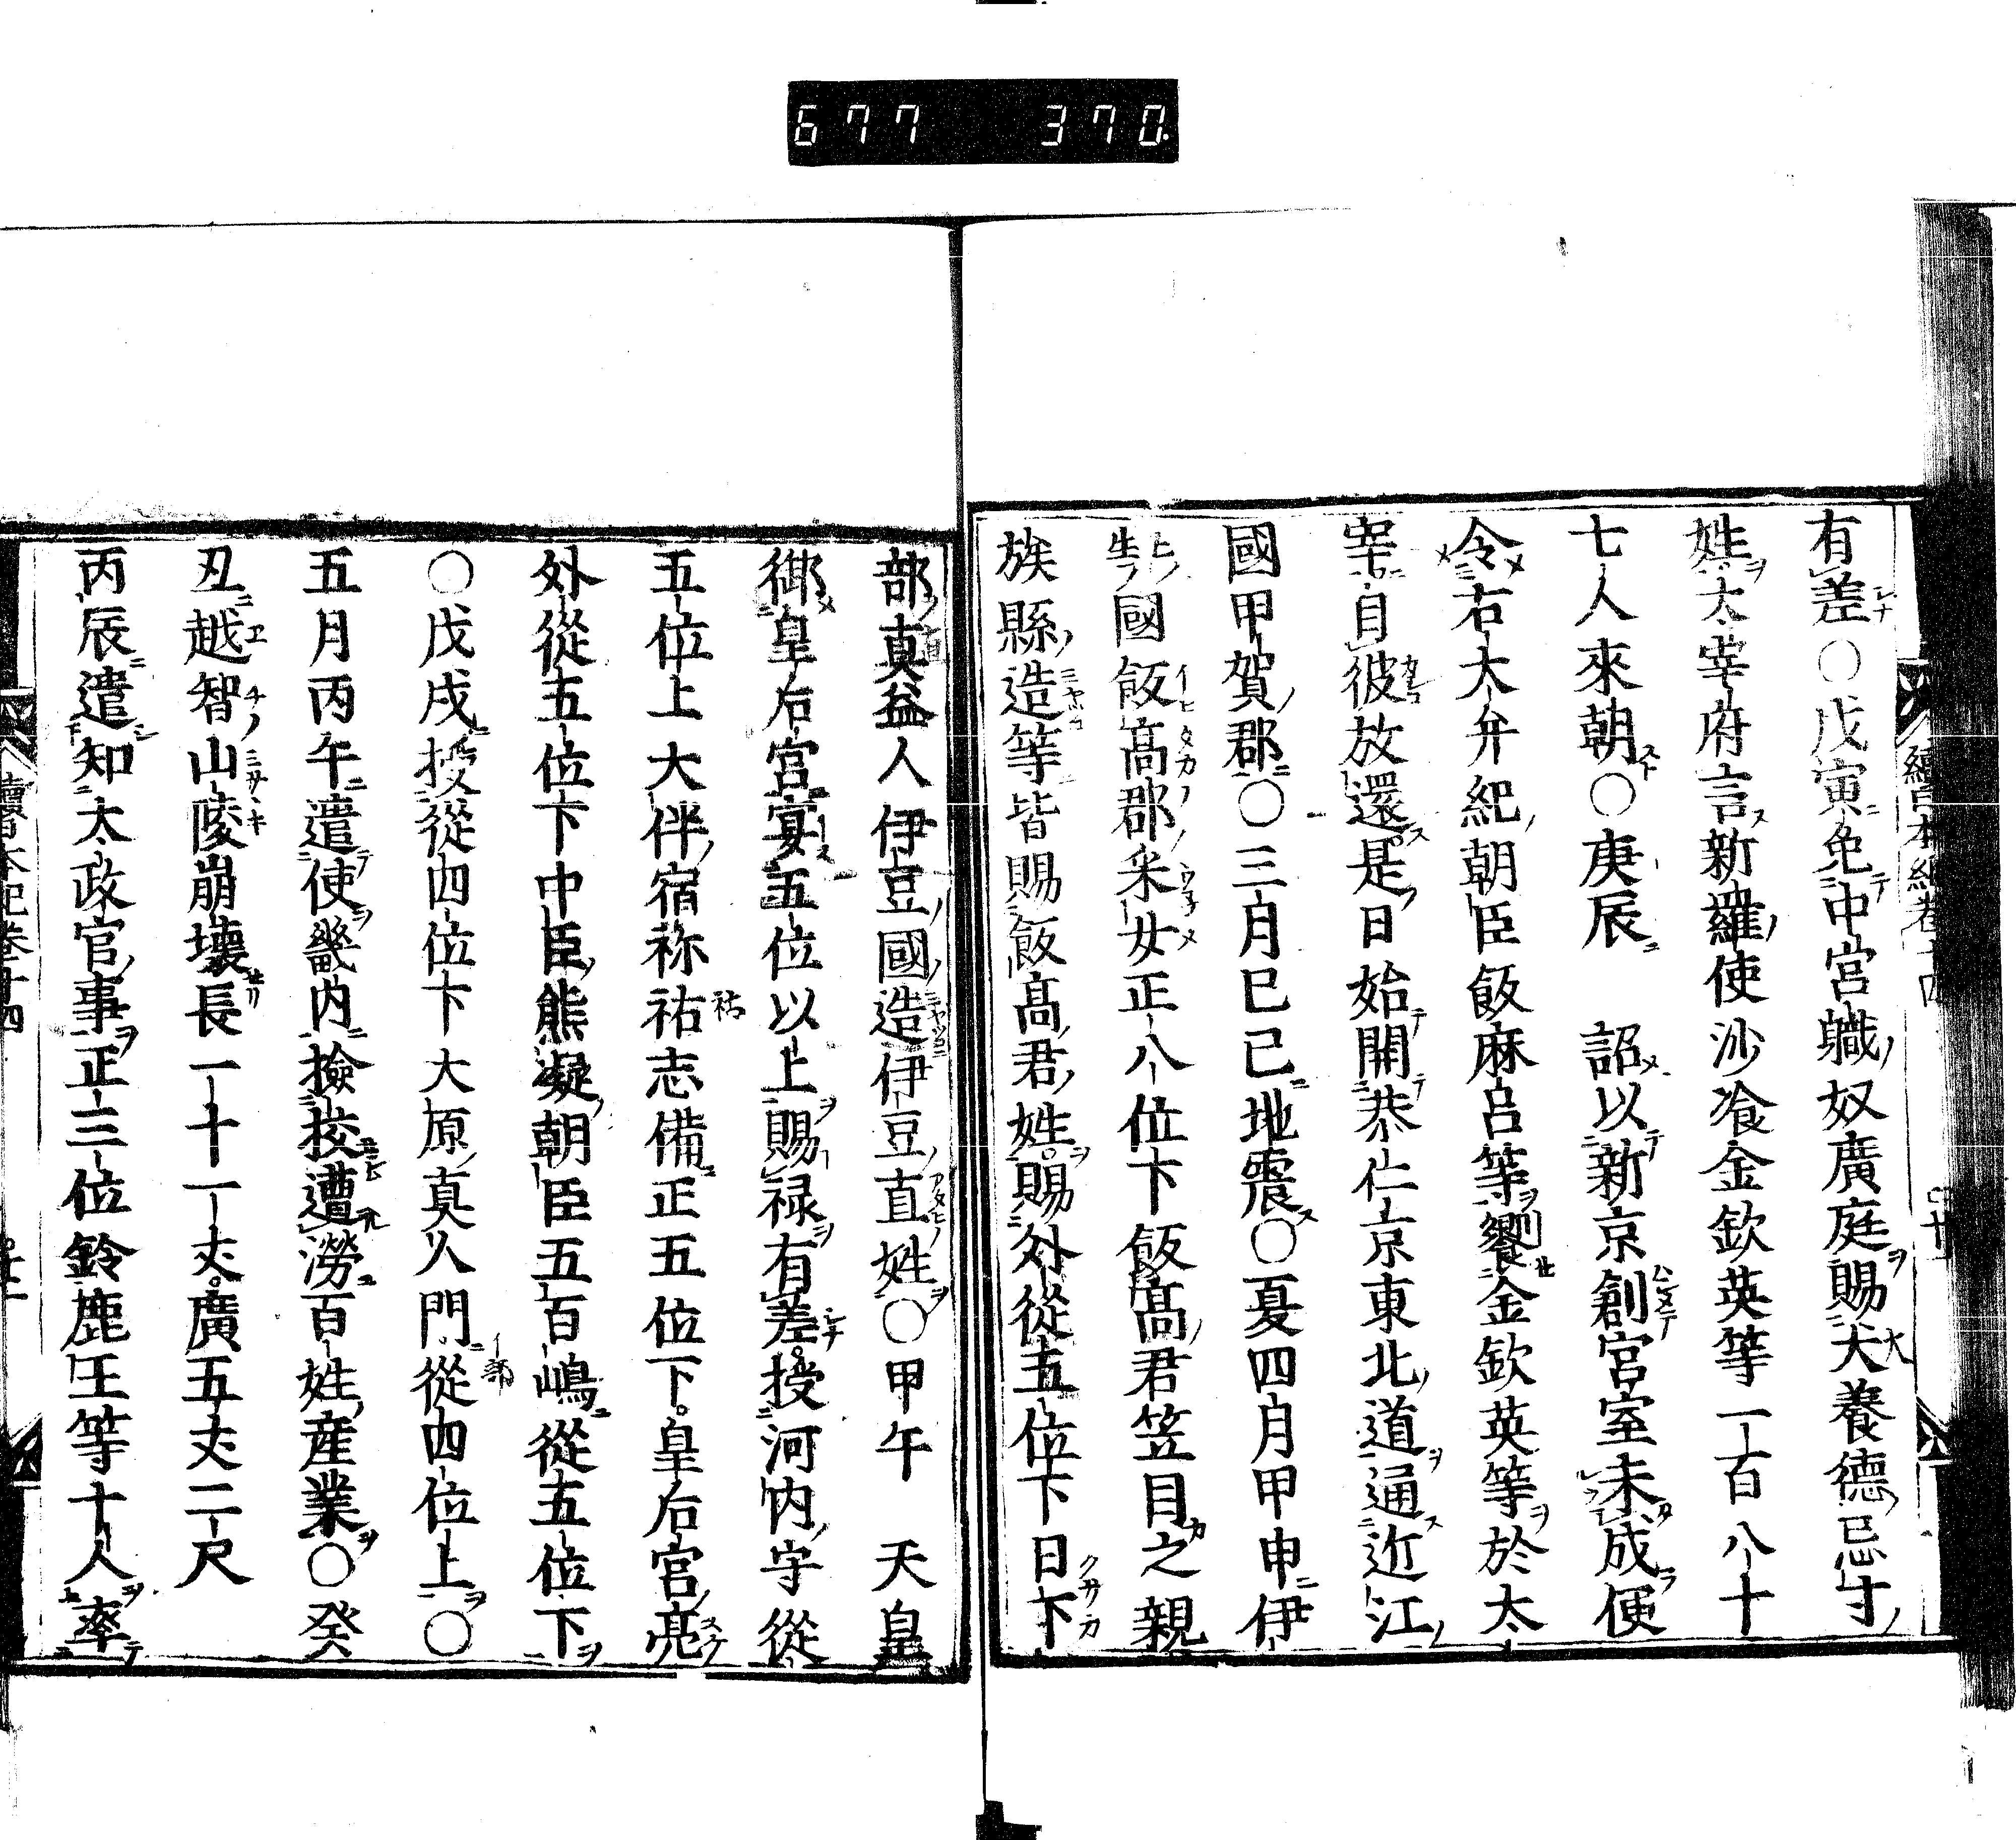 677 370.
有差○戊寅免中宮職奴廣庭賜大養德忌寸
姓太宰府言新羅使沙飡金欽英等一百八十
七人來朝○庚辰　詔以新京創宮室未成便
令右大弁紀朝臣飯麻呂等饗金欽英等於太
宰自彼放還是日始開恭仁京東北道通近江
國甲賀郡○三月己巳地震○夏四月甲申伊
勢國飯髙郡采女正八位下飯髙君笠目之親
族縣造等皆賜飯髙君姓賜外從五位下日下
部真益人伊豆國造伊豆直姓○甲午　天皇
御皇后宮宴五位以上賜禄有差授河內守從
五位上大伴宿祢祜志備正五位下皇后宮亮
外從五位下中臣熊凝朝臣五百嶋從五位下
○戊戌授從四位下大原真人門從四位上○
五月丙午遣使畿內撿挍遭澇百姓產業○癸
丑越智山陵崩壞長一十一丈廣五丈二尺
丙辰遣知太政官事正三位鈴鹿王等十人率